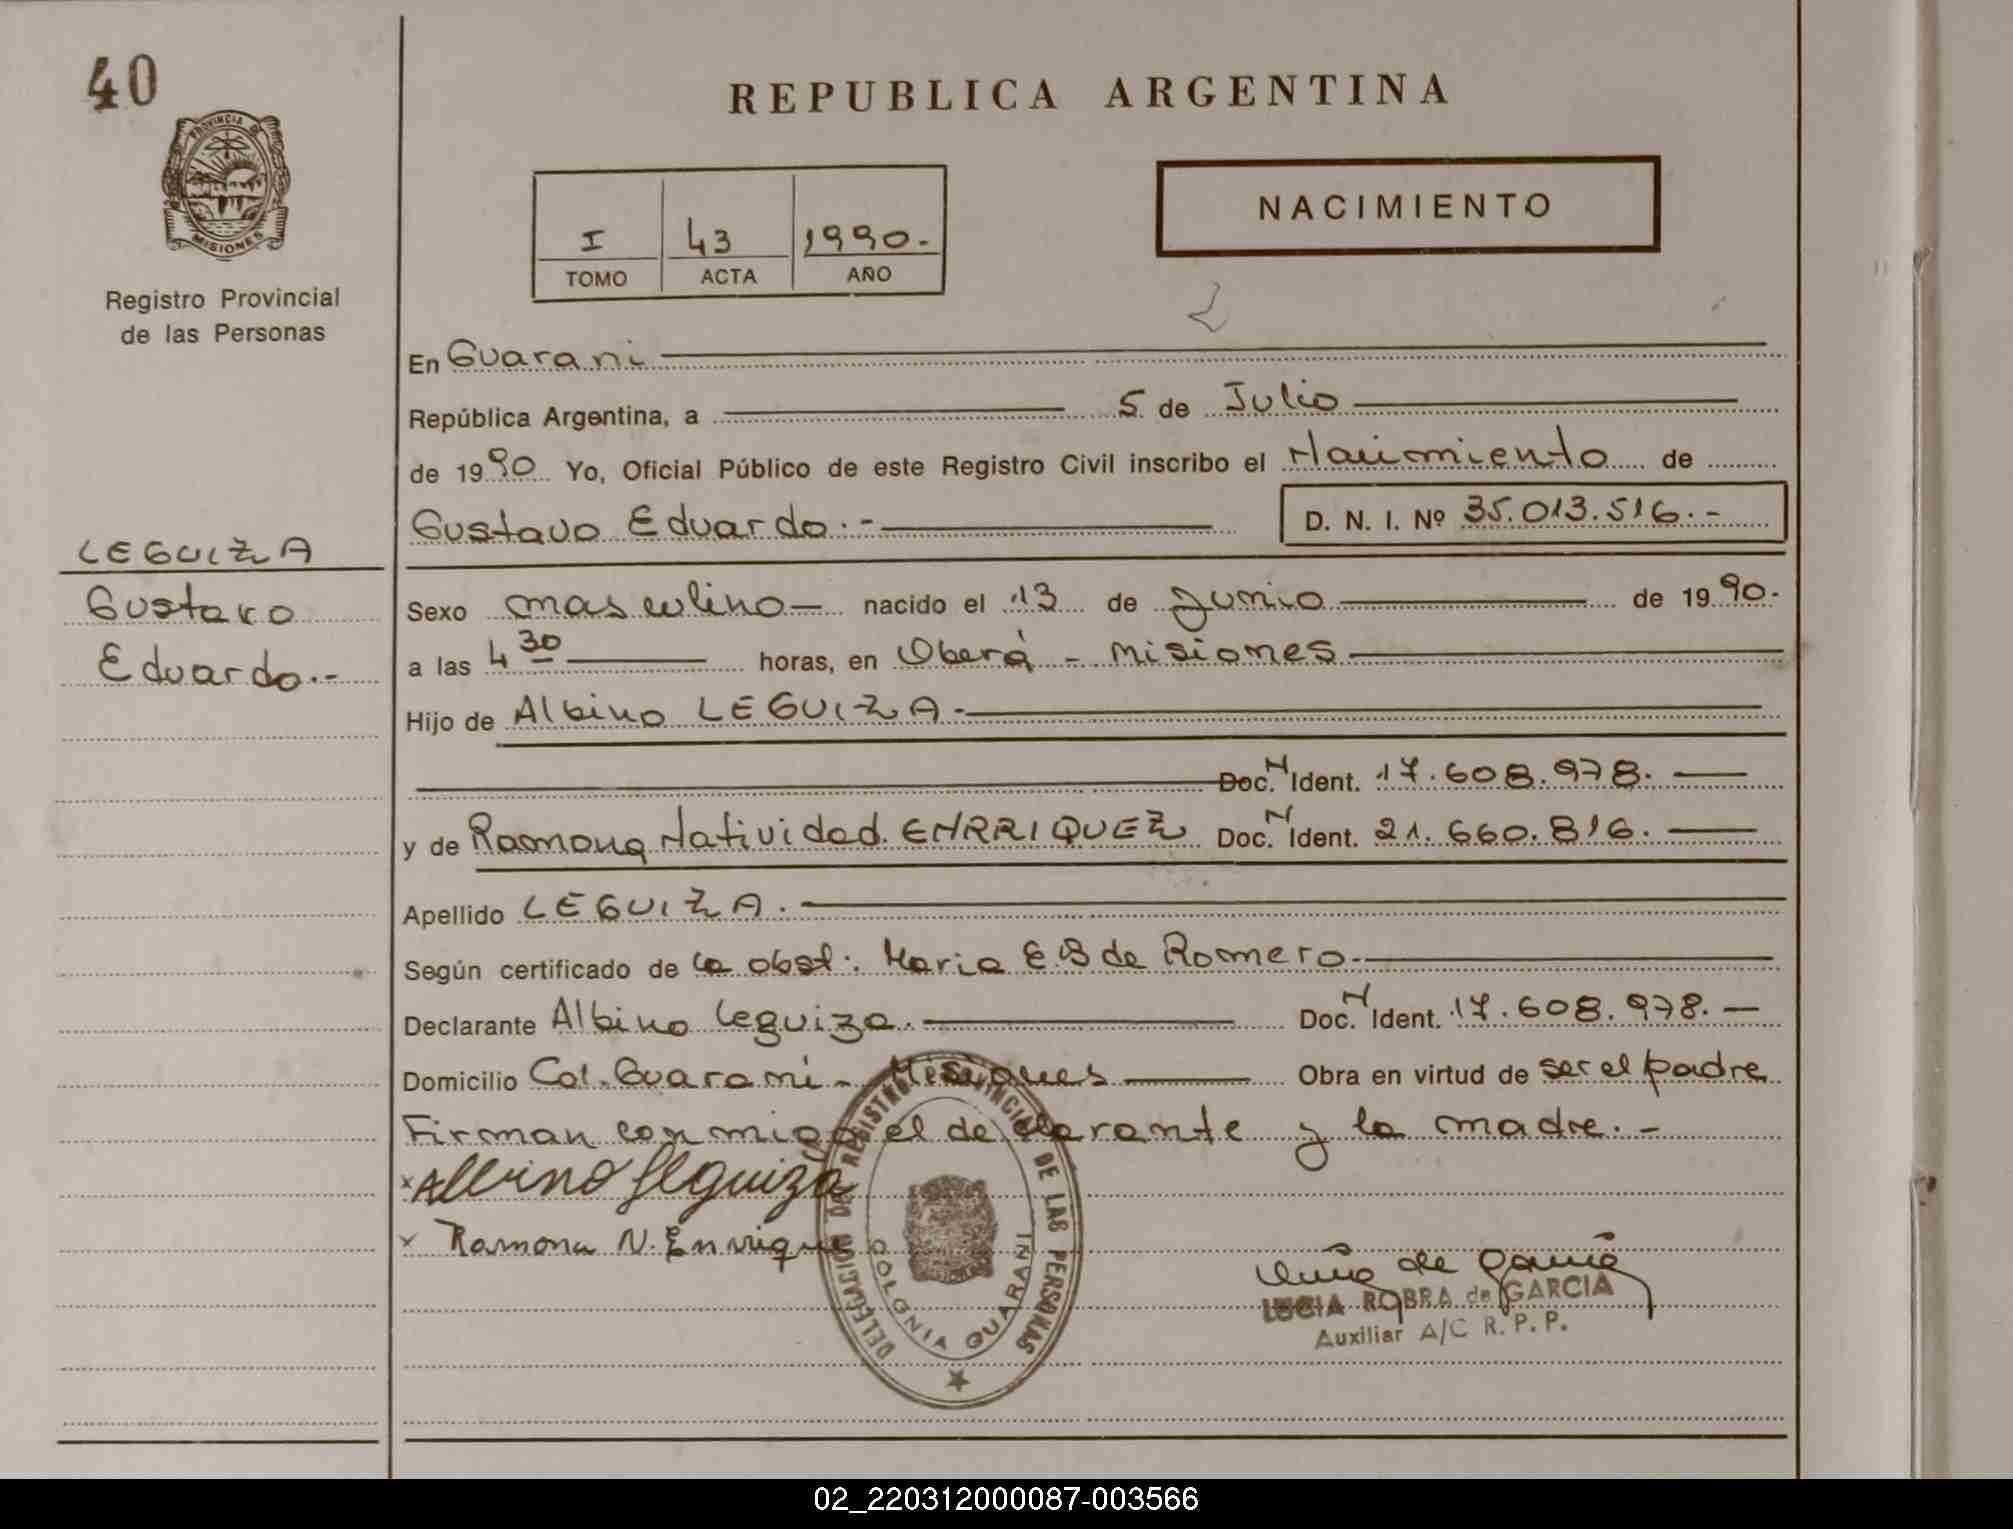 40
REPUBLICA ARGENTINA
PROVINCIA DE
MISIONES
Registro Provincial
de las Personas
I 43 1990.-
TOMO ACTA AÑO
NACIMIENTO
En Guarani
República Argentina, a 5 de Julio
de 1990 Yo, Oficial Público de este Registro Civil inscribo el Nacimiento de
Gustavo Eduardo.- D. N. I. Nº 35.013.516.-
LEGUIZA
Gustavo
Eduardo.-
Sexo masculino nacido el 13 de Junio de 1990.
a las 4 30 horas, en Oberá - Misiones
Hijo de Albino LEGUIZA.
Doc. N Ident. 17.608.978.
y de Ramona Natividad ENRRIQUEZ Doc. N Ident. 21.660.816.
Apellido LEGUIZA.
Según certificado de la obst. Maria E.B de Romero.
Declarante Albino Leguiza. Doc. N Ident. 17.608.978.
Domicilio Col. Guarani - Misiones Obra en virtud de ser el padre
Firman conmigo el declarante y la madre.-
x Albino Leguiza
x Ramona N. Enrrique
DELEGACION DEL REGISTRO PROVINCIAL DE LAS PERSONAS
COLONIA GUARANI
de Garcia
LUCIA ROBRA de GARCIA
Auxiliar A/C R. P. P.
02_220312000087-003566